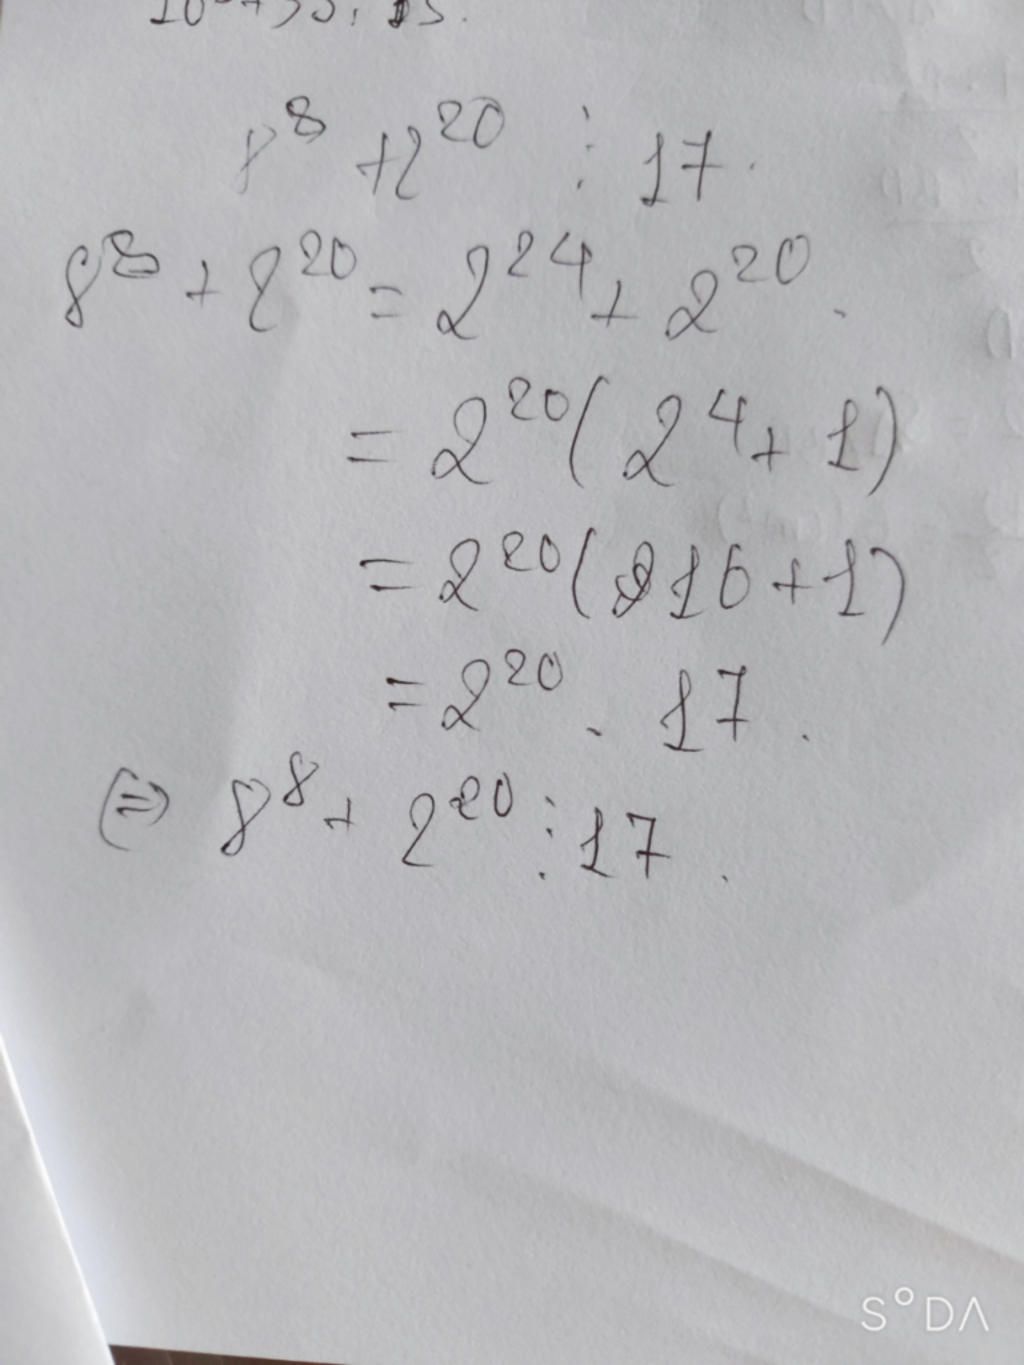 8⁸ + 2²⁰ ⋮ 17.
8⁸ + 2²⁰ = 2²⁴ + 2²⁰.
= 2²⁰ ( 2⁴ + 1 )
= 2²⁰ ( 16 + 1 )
= 2²⁰ . 17 .
(=) 8⁸ + 2²⁰ ⋮ 17 .
S°DA